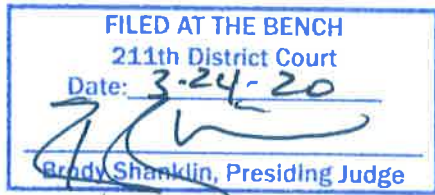 FILED AT THE BENCH
211th District Court
Date: 3-24-20
Brody Shanklin, Presiding Judge